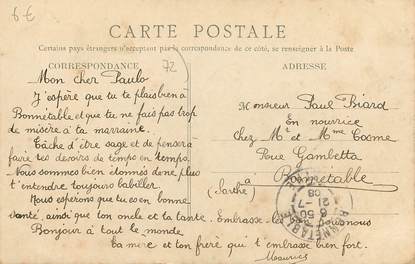 6€
CARTE POSTALE
Certains pays étrangers n'acceptant pas la correspondance de ce côté, se renseigner à la Poste
CORRESPONDANCE
72
Mon cher Paulo
J'espère que tu te plais bien à
Bonnétable et que tu ne fais pas trop
de misère à ta marraine.
Tâche d'être sage et de penser à
faire tes devoirs de temps en temps.
Nous sommes bien donnés de ne plus
t'entendre toujours babiller.
Nous esperons que tu es en bonne
santé, ainsi que ton oncle et ta tante. Embrasse-les pour nous
Bonjour à tout le monde
Ta mère et ton frère qui t'embrasse bien fort.
Maurice
ADRESSE
Monsieur Paul Biard
En nourrice
chez Mr et Mme Cosme
Rue Gambetta
à Bonnétable
(Sarthe)
BONNETABLE
6 50
21-7
08